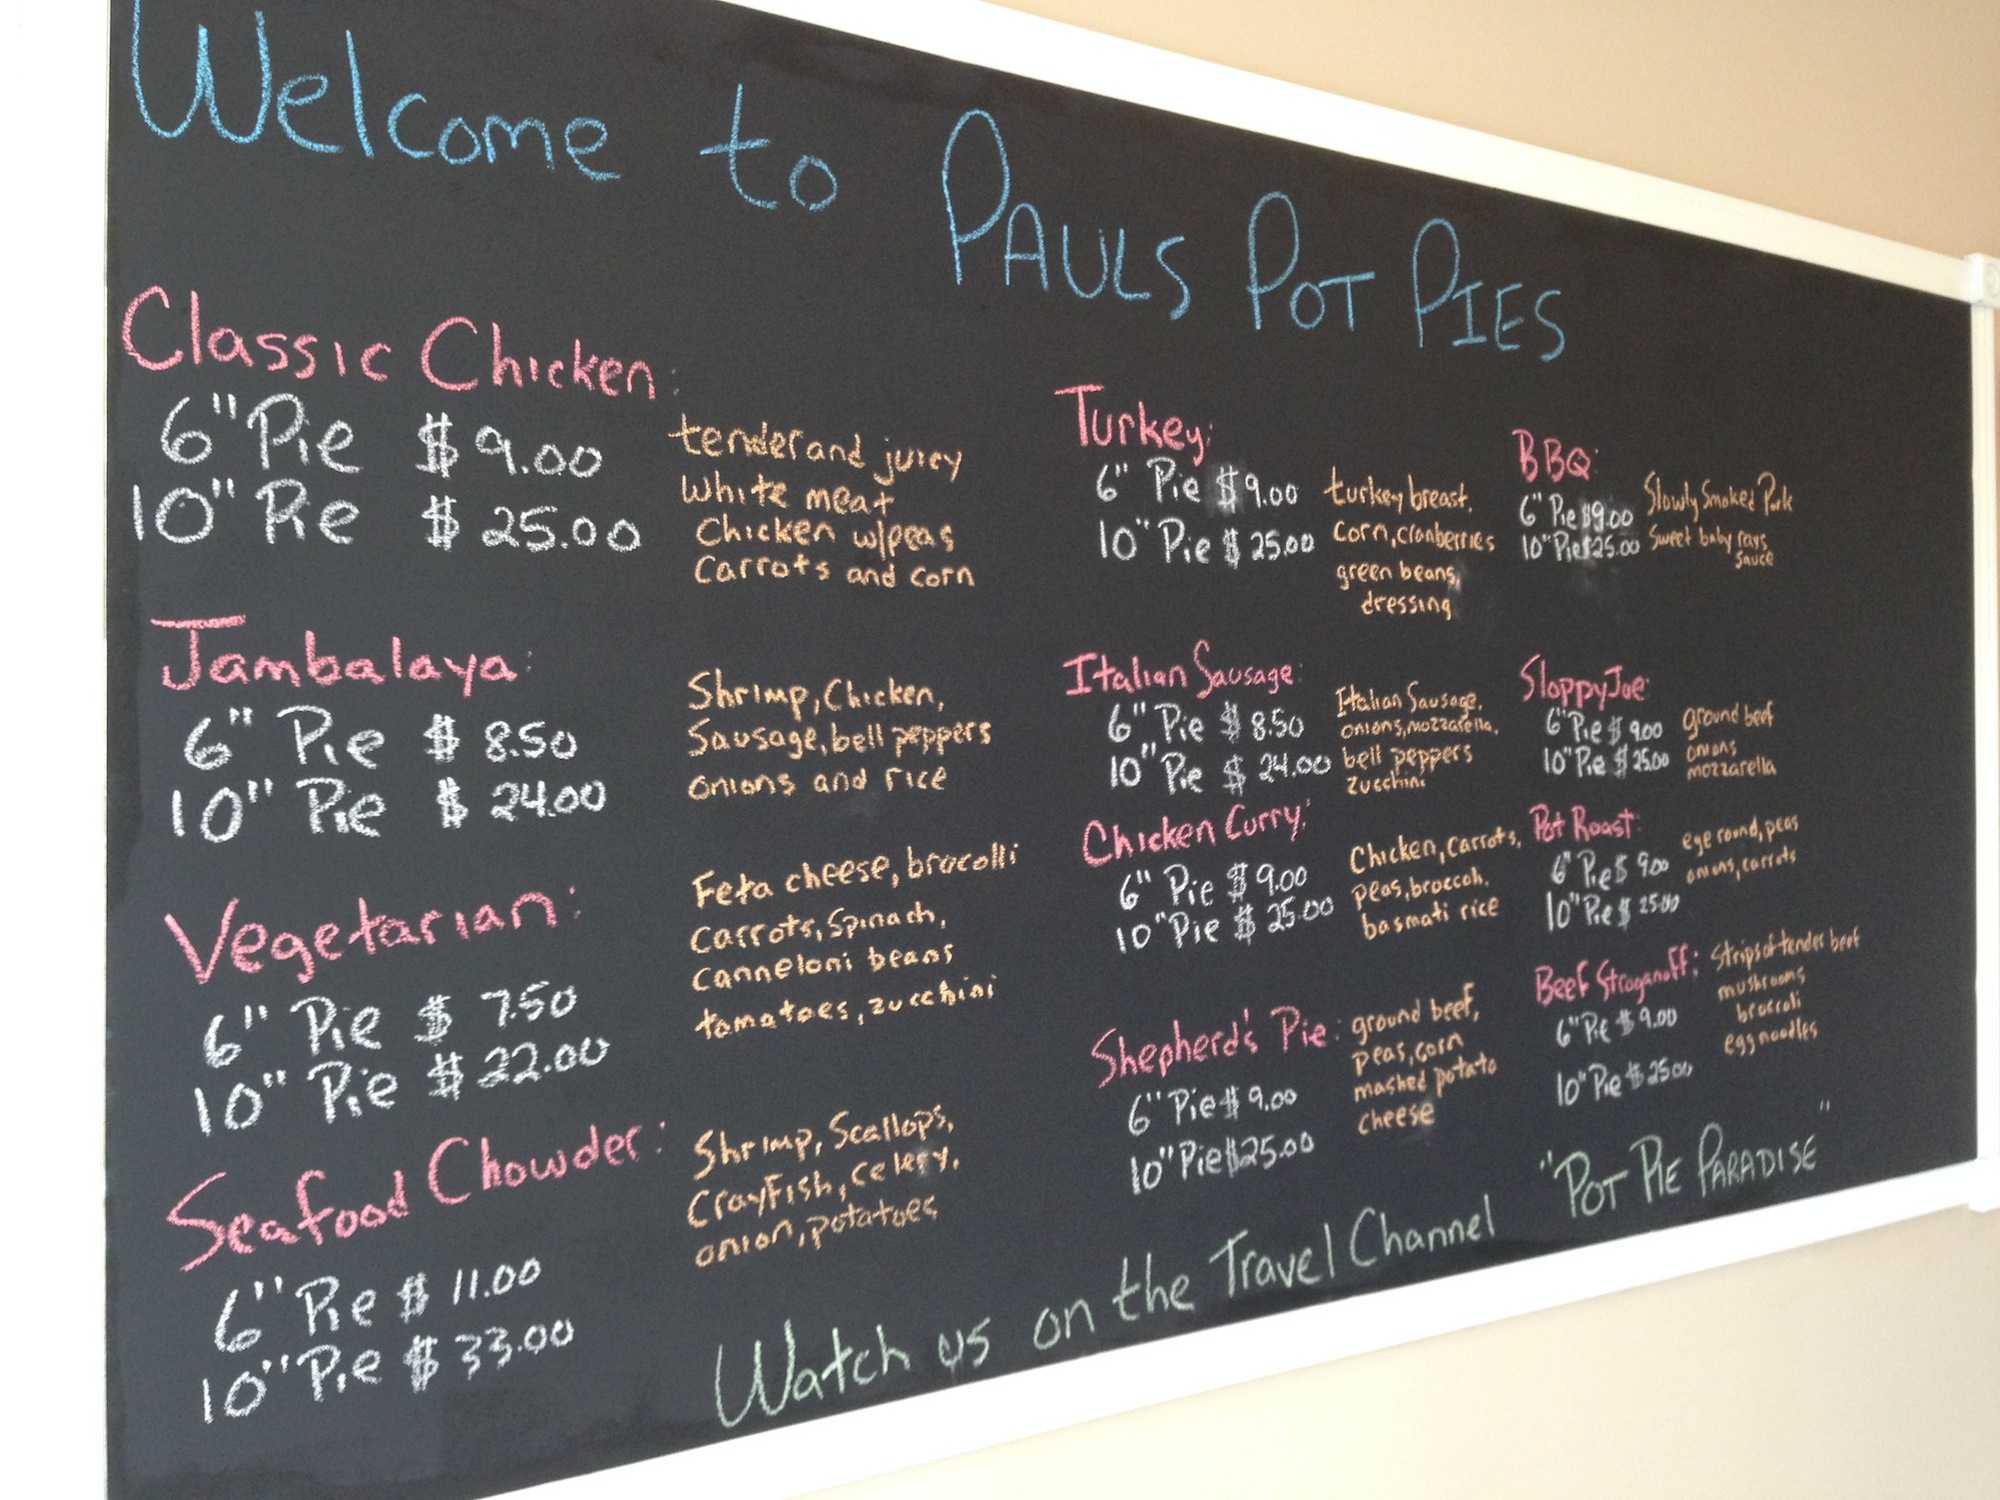 Welcome to PAULS POT PIES
Classic Chicken:
6" Pie $ 9.00
10" Pie $ 25.00
tender and juicy
white meat
Chicken w/peas
Carrots and corn
Jambalaya:
6" Pie $ 8.50
10" Pie $ 24.00
Shrimp, Chicken,
Sausage, bell peppers
onions and rice
Vegetarian:
6" Pie $ 7.50
10" Pie $ 22.00
Feta cheese, brocolli
Carrots, Spinach,
Canneloni beans
tomatoes, zucchini
Seafood Chowder:
6" Pie $ 11.00
10" Pie $ 33.00
Shrimp, Scallops,
CrayFish, celery,
onion, potatoes
Turkey:
6" Pie $ 9.00
10" Pie $ 25.00
turkey breast,
corn, cranberries
green beans,
dressing
Italian Sausage:
6" Pie $ 8.50
10" Pie $ 24.00
Italian Sausage,
onions, mozzarella,
bell peppers
zucchini
Chicken Curry:
6" Pie $ 9.00
10" Pie $ 25.00
Chicken, carrots,
peas, broccoli,
basmati rice
Shepherd's Pie:
6" Pie $ 9.00
10" Pie $ 25.00
ground beef,
peas, corn
mashed potato
cheese
BBQ:
6" Pie $9.00
10" Pie $25.00
Slowly Smoked Pork
Sweet baby rays
Sauce
Sloppy Joe:
6" Pie $ 9.00
10" Pie $ 25.00
ground beef
onions
mozzarella
Pot Roast:
6" Pie $ 9.00
10" Pie $ 25.00
eye round, peas
onions, carrots
Beef Stroganoff:
6" Pie $ 9.00
10" Pie $ 25.00
Strips of tender beef
mushrooms
broccoli
egg noodles
Watch us on the Travel Channel "POT PIE PARADISE"